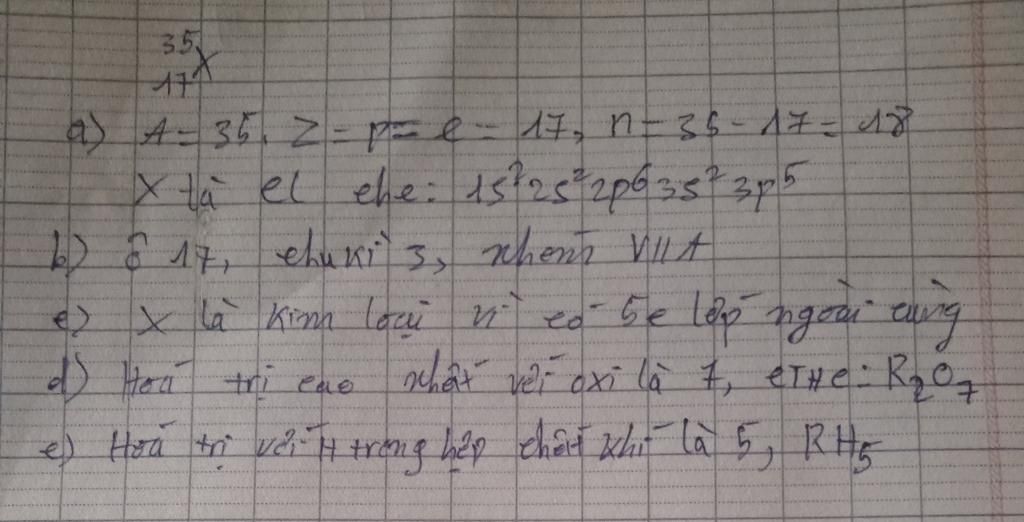 35
17 X
a) A = 35. Z = p = e = 17, n = 35 - 17 = 18
X là cl che: 1s² 2s² 2p⁶ 3s² 3p⁵
b) ô 17, chu kì 3, nhóm VIIA
c) X là kim loại vì có 5e lớp ngoài cùng
d) Hoá trị cao nhất với oxi là 7, CTHC: R₂O₇
e) Hoá trị với H trong hợp chất khí là 5, RH₅